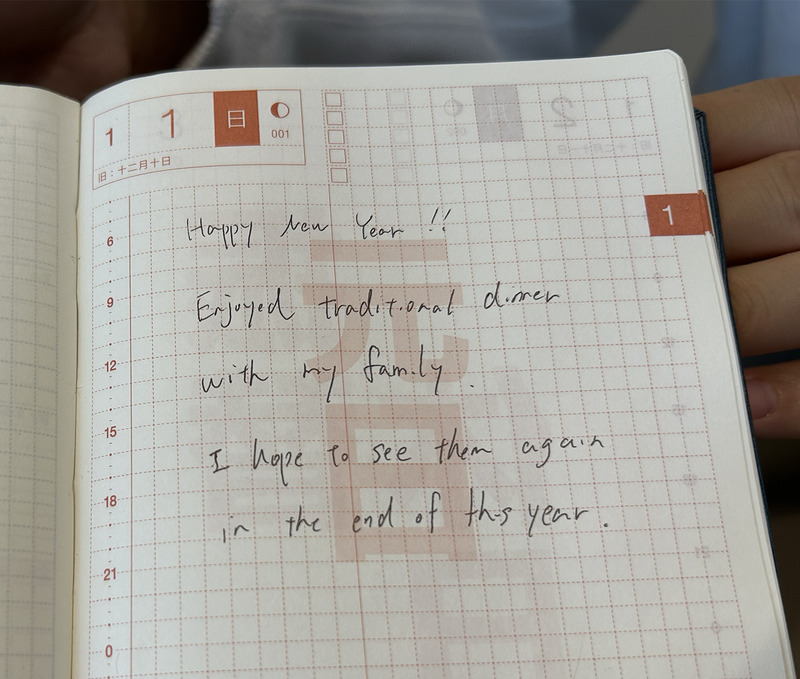 1 1 日
001
旧：十二月十日
1
6
Happy New Year !!
元日
9
Enjoyed traditional dinner
12
with my family.
15
I hope to see them again
18
in the end of this year.
21
0